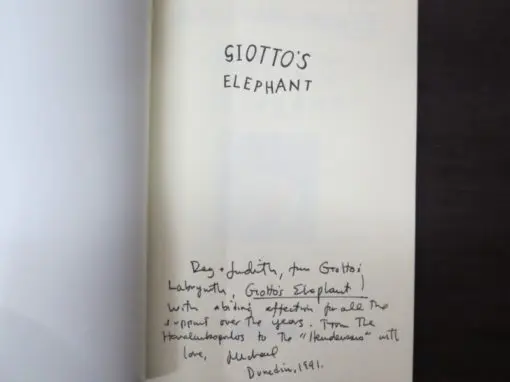 GIOTTO'S
ELEPHANT
Reg + Judith, Giotto's
Labrynth, Giotto's Elephant!
With abiding affection for all the
support over the years. From the
Haralambopolos to the "Hendersons" with
love, Michael
Dunedin, 1991.